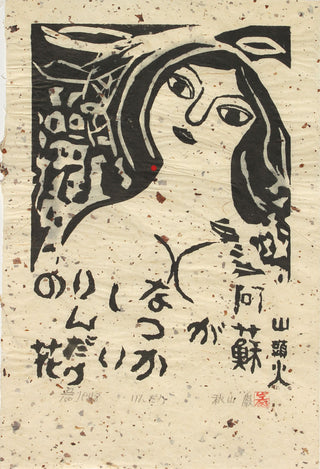 山頭火
阿蘇
が
なつか
しい
りんだう
の花
秋山巌